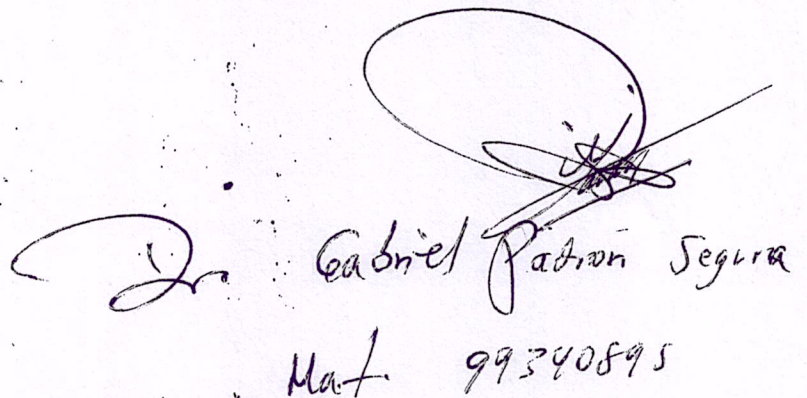 Dr. Gabriel Padrón Segura
Mat. 99340895